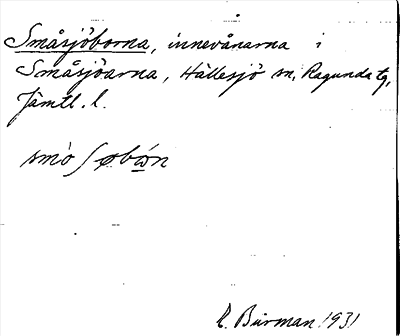 Småsjöborna, innevånarna i
Småsjöarna, Hällesjö sn, Ragunda tg,
Jämtl. l.
smò
Burman 1931